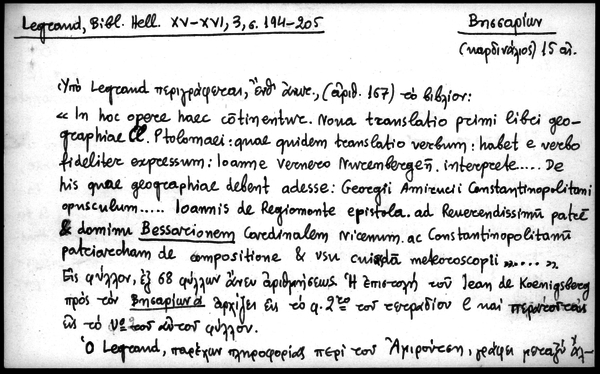 Legrand, Bibl. Hell. XV-XVI, 3, σ. 194-205
Βησσαρίων
(καρδινάλιος) 15 αἰ.
Ὑπὸ Legrand περιγράφεται, ἔνθ' ἀνωτ., (ἀριθ. 167) τὸ βιβλίον:
« In hoc opere haec cōtinentur. Noua translatio primi libri geo-
graphiae Cl. Ptolomaei: quae quidem translatio verbum: habet e verbo
fideliter expressum: Ioanne Vernero Nurenbergeñ. interprete..... De
his quae geographiae debent adesse: Georgii Amirucii Constantinopolitani
opusculum..... Ioannis de Regiomonte epistola. ad Reuerendissimū patrē
& dominu Bessarionem Cardinalem Nicenum. ac Constantinopolitanū
patriarcham de compositione & vsu cuiusdā meteoroscopii »..... ».
Εἰς φύλλον, ἐξ 68 φύλλων ἄνευ ἀριθμήσεως. Ἡ ἐπιστολὴ τοῦ Jean de Koenigsberg
πρὸς τὸν Βησσαρίωνα ἀρχίζει εἰς τὸ φ. 2ʳᵒ τοῦ τετραδίου l καὶ περατοῦται
εἰς τὸ vᵒ τοῦ αὐτοῦ φύλλου.
Ὁ Legrand, παρέχων πληροφορίας περὶ τοῦ Ἀμιρούτση, γράφει μεταξὺ ἄλ-